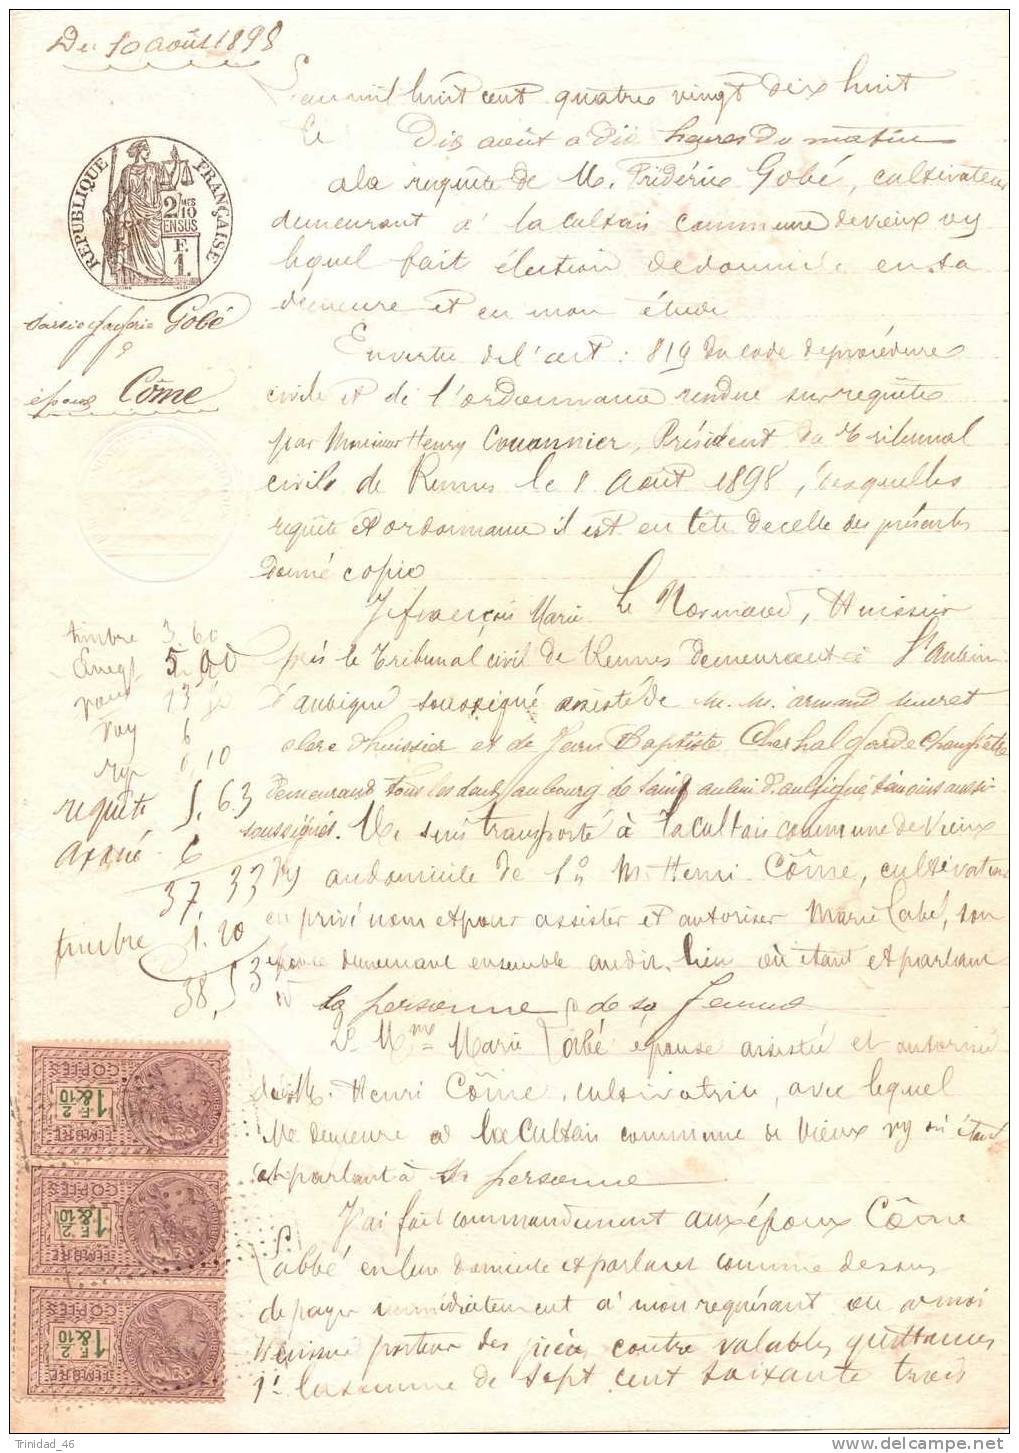 Du 10 août 1898
L'an mil huit cent quatre vingt dix huit
le Dix août a dix heures du matin
a la requête de M. Frédéric Gobé, cultivateur
demeurant à La Cultais commune de vieux vy
lequel fait élection de domicile en sa
demeure et en mon étude
RÉPUBLIQUE FRANÇAISE
2/10 MES
EN SUS
F.
1.
saisie Gobé
époux Côme
En vertu de l'art : 819 du code de procédure
civile et de l'ordonnance rendue sur requête
par Monsieur Henry Couannier, Président du Tribunal
civile de Rennes le 8 Août 1898, desquelles
requête et ordonnance il est en tête de celle des présentes
donné copie
Je françois Marie Le Normand, Huissier
près le Tribunal civil de Rennes demeurant à St Aubin
d'aubigné soussigné assisté de M. M. armand
clerc d'huissier et de Jean Baptiste garde champêtre
demeurant tous les deux au bourg de Saint aubin d'aubigné, témoins aussi
soussignés. Me suis transporté à La Cultais commune de Vieux
Vy au domicile de 1o M. Henri Côme, cultivateur
en privé nom et pour assister et autoriser Marie Labé, son
épouse demeurant ensemble audit lieu où étant et parlant
à la personne de sa femme
2o Mme Marie Labé épouse assistée et autorisée
dudit M. Henri Côme, cultivatrice, avec lequel
elle demeure à La Cultais commune de Vieux vy où étant
et parlant à sa personne
J'ai fait commandement aux époux Côme
Labbé en leur domicile et parlant comme dessus
de payer immédiatement à mon requérant ou a moi
Huissier porteur des pièces contre valables quittances
1o la somme de Sept cent soixante trois
timbre 3.60
Enregt 5.00
voy 6
rep 0,10
requête 5.63
6
37,33
timbre 1.20
38,53
COPIES
1F 2/10
&
TIMBRE
COPIES
1F 2/10
&
TIMBRE
COPIES
1F 2/10
&
TIMBRE
Trinidad_46
delcampe.net